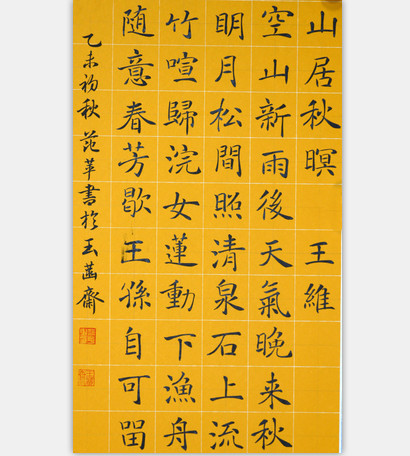 山居秋暝 王維
空山新雨後天氣晚来秋
眀月松間照清泉石上流
竹喧歸浣女蓮動下漁舟
随意春芳歇王孫自可留
乙未初秋 范 書於玉 齋